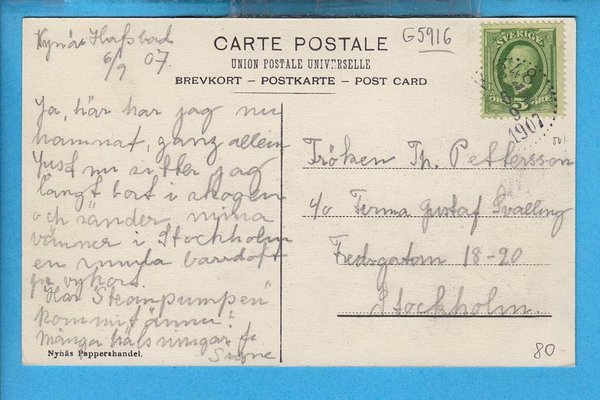 Nynäs Hafsbad
6/9 07.
G5916
CARTE POSTALE
UNION POSTALE UNIVERSELLE
BREVKORT – POSTKARTE – POST CARD
SVERIGE
5 ÖRE
1907
Ja, här har jag nu
hamnat, ganz allein
Just nu sitter jag
långt bort i skogen
och sänder mina
vänner i Stockholm
en smula barrdoft
pr vykort.
Har "Steampumpen"
kommit ännu?
Många hälsningar fr
Signe
Nynäs Pappershandel.
Fröken Th. Pettersson
c/o Firma Gustaf Svalling
Fredsgatan 18-20
Stockholm.
80